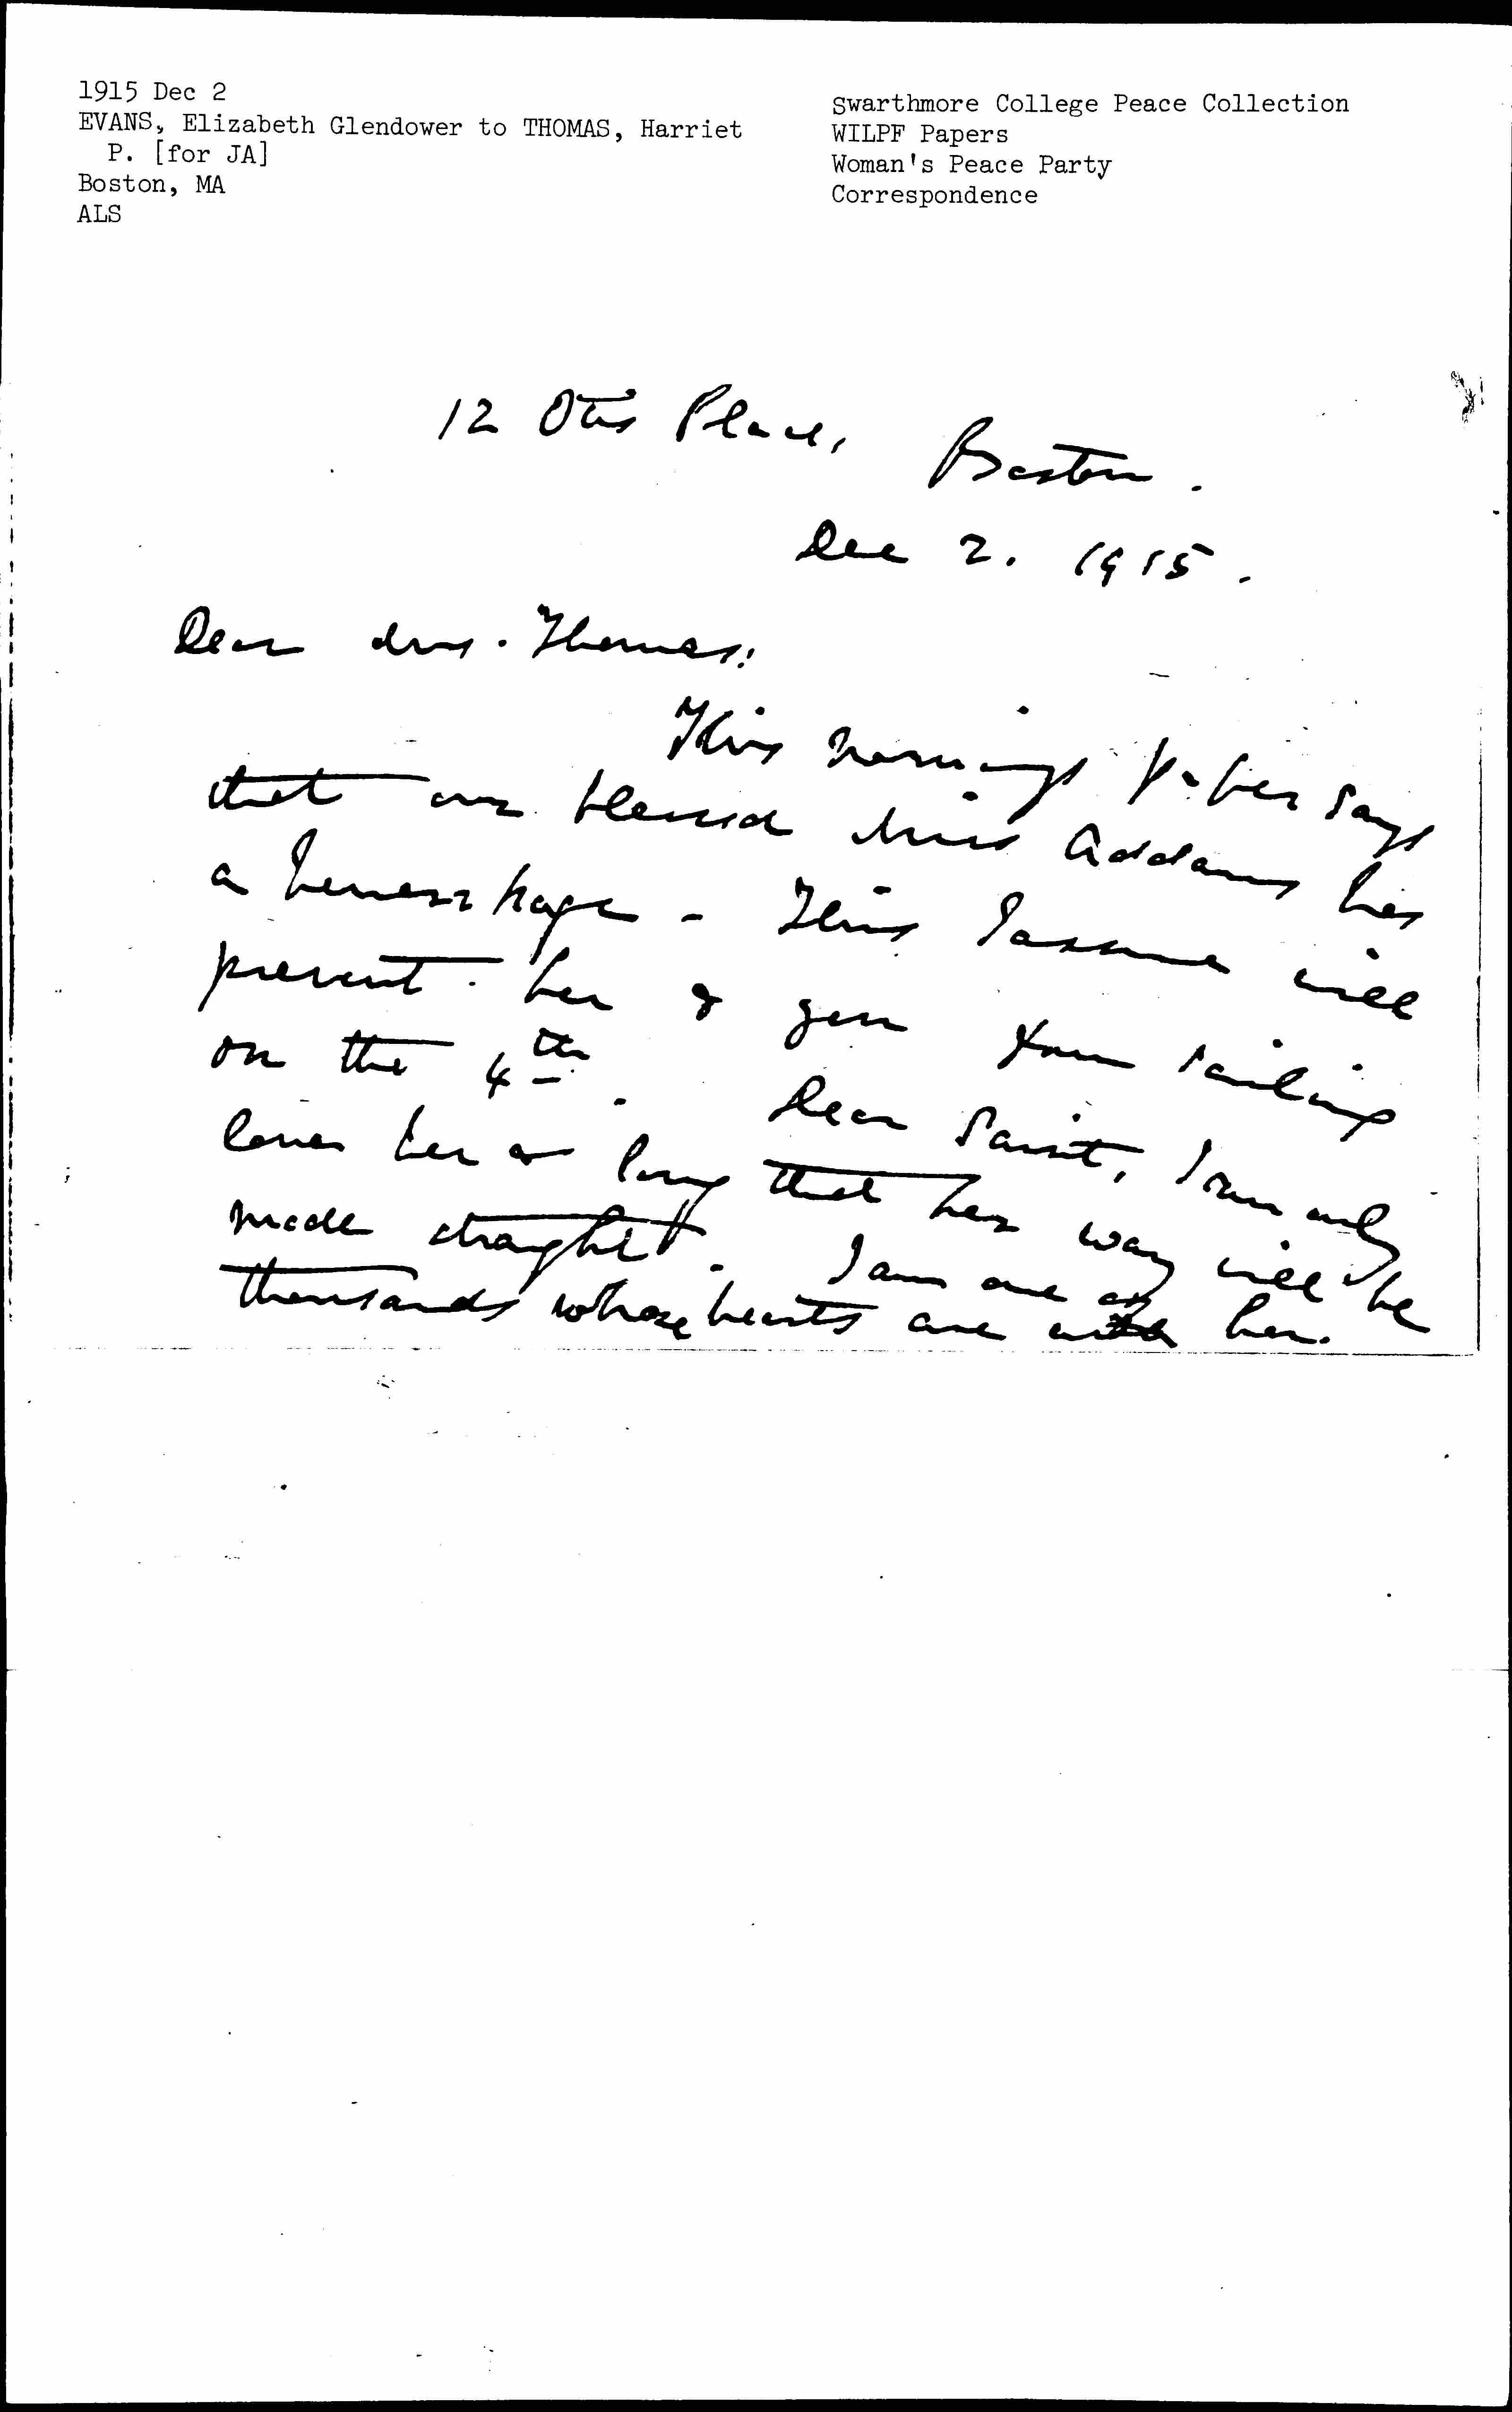 1915 Dec 2
EVANS, Elizabeth Glendower to THOMAS, Harriet
P. [for JA]
Boston, MA
ALS
Swarthmore College Peace Collection
WILPF Papers
Woman's Peace Party
Correspondence
12 Otis Place,
Boston.
Dec 2. 1915.
Dear Mrs. Thomas:
This morning's paper says
that our blessed Miss Addams has
a hemorrhage - This I assume will
prevent her & you from sailing
on the 4th. Dear Saint, I can only
love her & long that her way will be
made straight. I am one of
thousands whose hearts are with her.